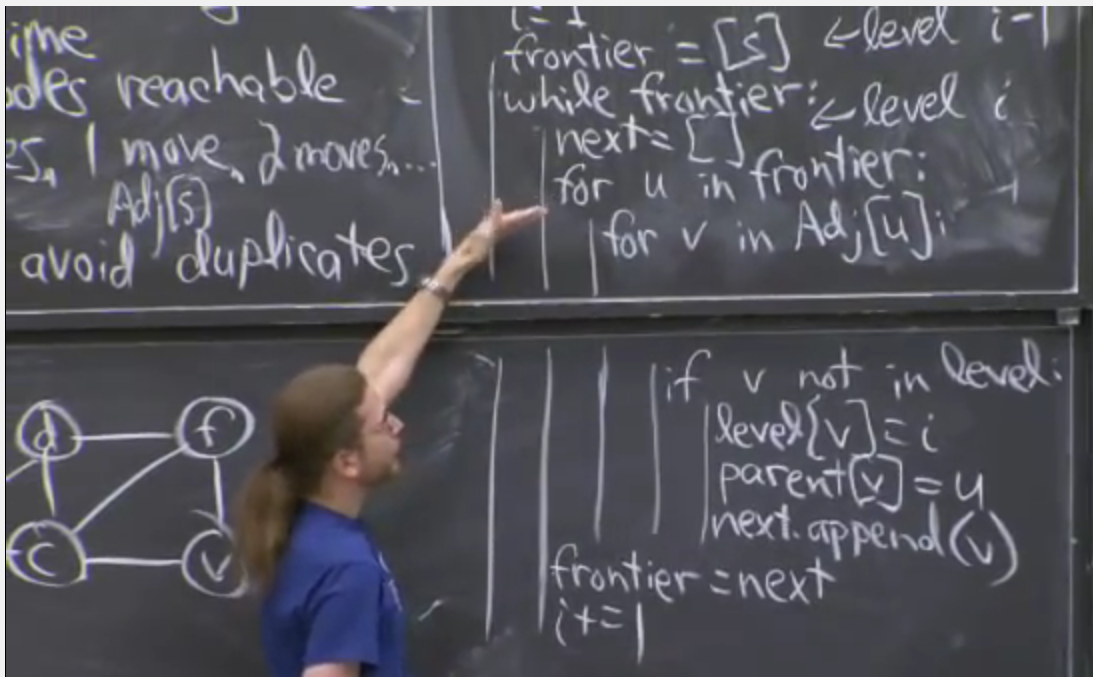 ime
odes reachable
es, 1 move, 2 moves, ...
Adj[s]
avoid duplicates
i = 1
frontier = [s] ← level i-1
while frontier: ← level i
next = []
for u in frontier:
for v in Adj[u]:
if v not in level:
level[v] = i
parent[v] = u
next.append(v)
frontier = next
i += 1
d f
c v